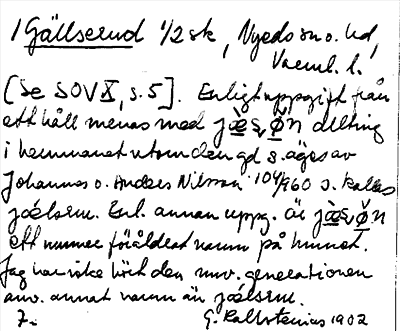 1 Gällserud 1/2 sk, Nyeds sn o. hd,
Vaerml. l.
[Se SOV X, s. 5]. Enligt uppgift från
ett håll menas med allting
i hemmanet utom den gd s. äges av
Johannes o. Anders Nilsson 104/960 s. kallas
jǽlsern. Enl. annan uppg. är
ett numer föråldrat namn på hmnet.
Jag har icke hört den nuv. generationen
anv. annat namn än jǽlsern.
7. G. Kallstenius 1902